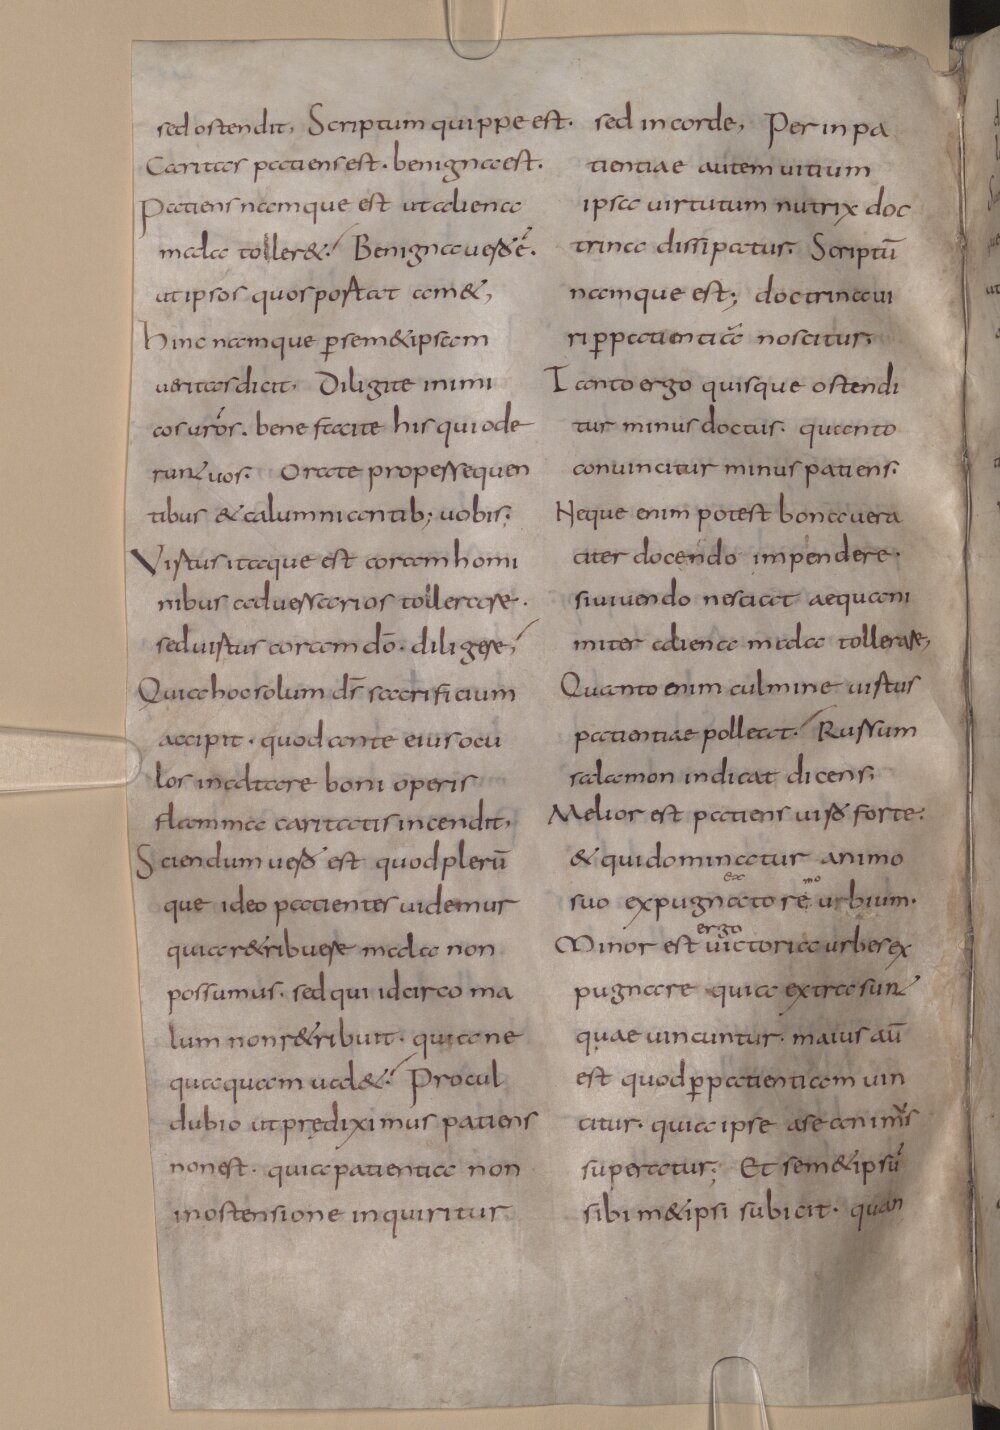 sed ostendit, Scriptum quippe est.
Caritas patiens est. benigna est.
Patiens namque est ut aliena
mala toller&. Benigna uero ē.
ut ipsos quos portat am&,
hinc namque ꝑ sem&ipsam
ueritas dicit. Diligite inimi
cos uros. bene facite his qui ode
runt uos. Orate pro persequen
tibus & calumniantib; uobis;
Virtus itaque est coram homi
nibus aduersarios tollerare.
sed uirtus coram dō. diligere,
Quia hoc solum ds̄ sacrificium
accipit. quod ante eius ocu
los in altare boni operis
flamma caritatis incendit,
Sciendum uero est quod plerū
que ideo patientes uidemur
quia r&ribuere mala non
possumus. sed qui idcirco ma
lum non r&ribuit. quia ne
quaquam ual&. Procul
dubio ut prędiximus patiens
non est. quia patientia non
in ostensione inquiritur
sed in corde, Per inpa
tientiae autem uitium
ipsa uirtutum nutrix doc
trina dissipatur. Scriptū
namque est; doctrina ui
ri ꝑ patientiā noscitur.
Tanto ergo quisque ostendi
tur minus doctus. quanto
conuincitur minus patiens.
Neque enim potest bona uera
citer docendo impendere.
si uiuendo nesciat aequani
miter aliena mala tollerare,
Quanto enim culmine uirtus
patientiae polleat. Rursum
salamon indicat dicens;
Melior est patiens uiro forte.
& qui dominatur animo
ex mo
suo expugnatore urbium.
ergo
Minor est uictoria urbes ex
pugnare quia extra sunt
quae uincuntur. maius aū
est quod ꝑ patientiam uin
citur. quia ipse a se animus
superatur; Et sem&ipsū
sibi m&ipsi subicit. quan